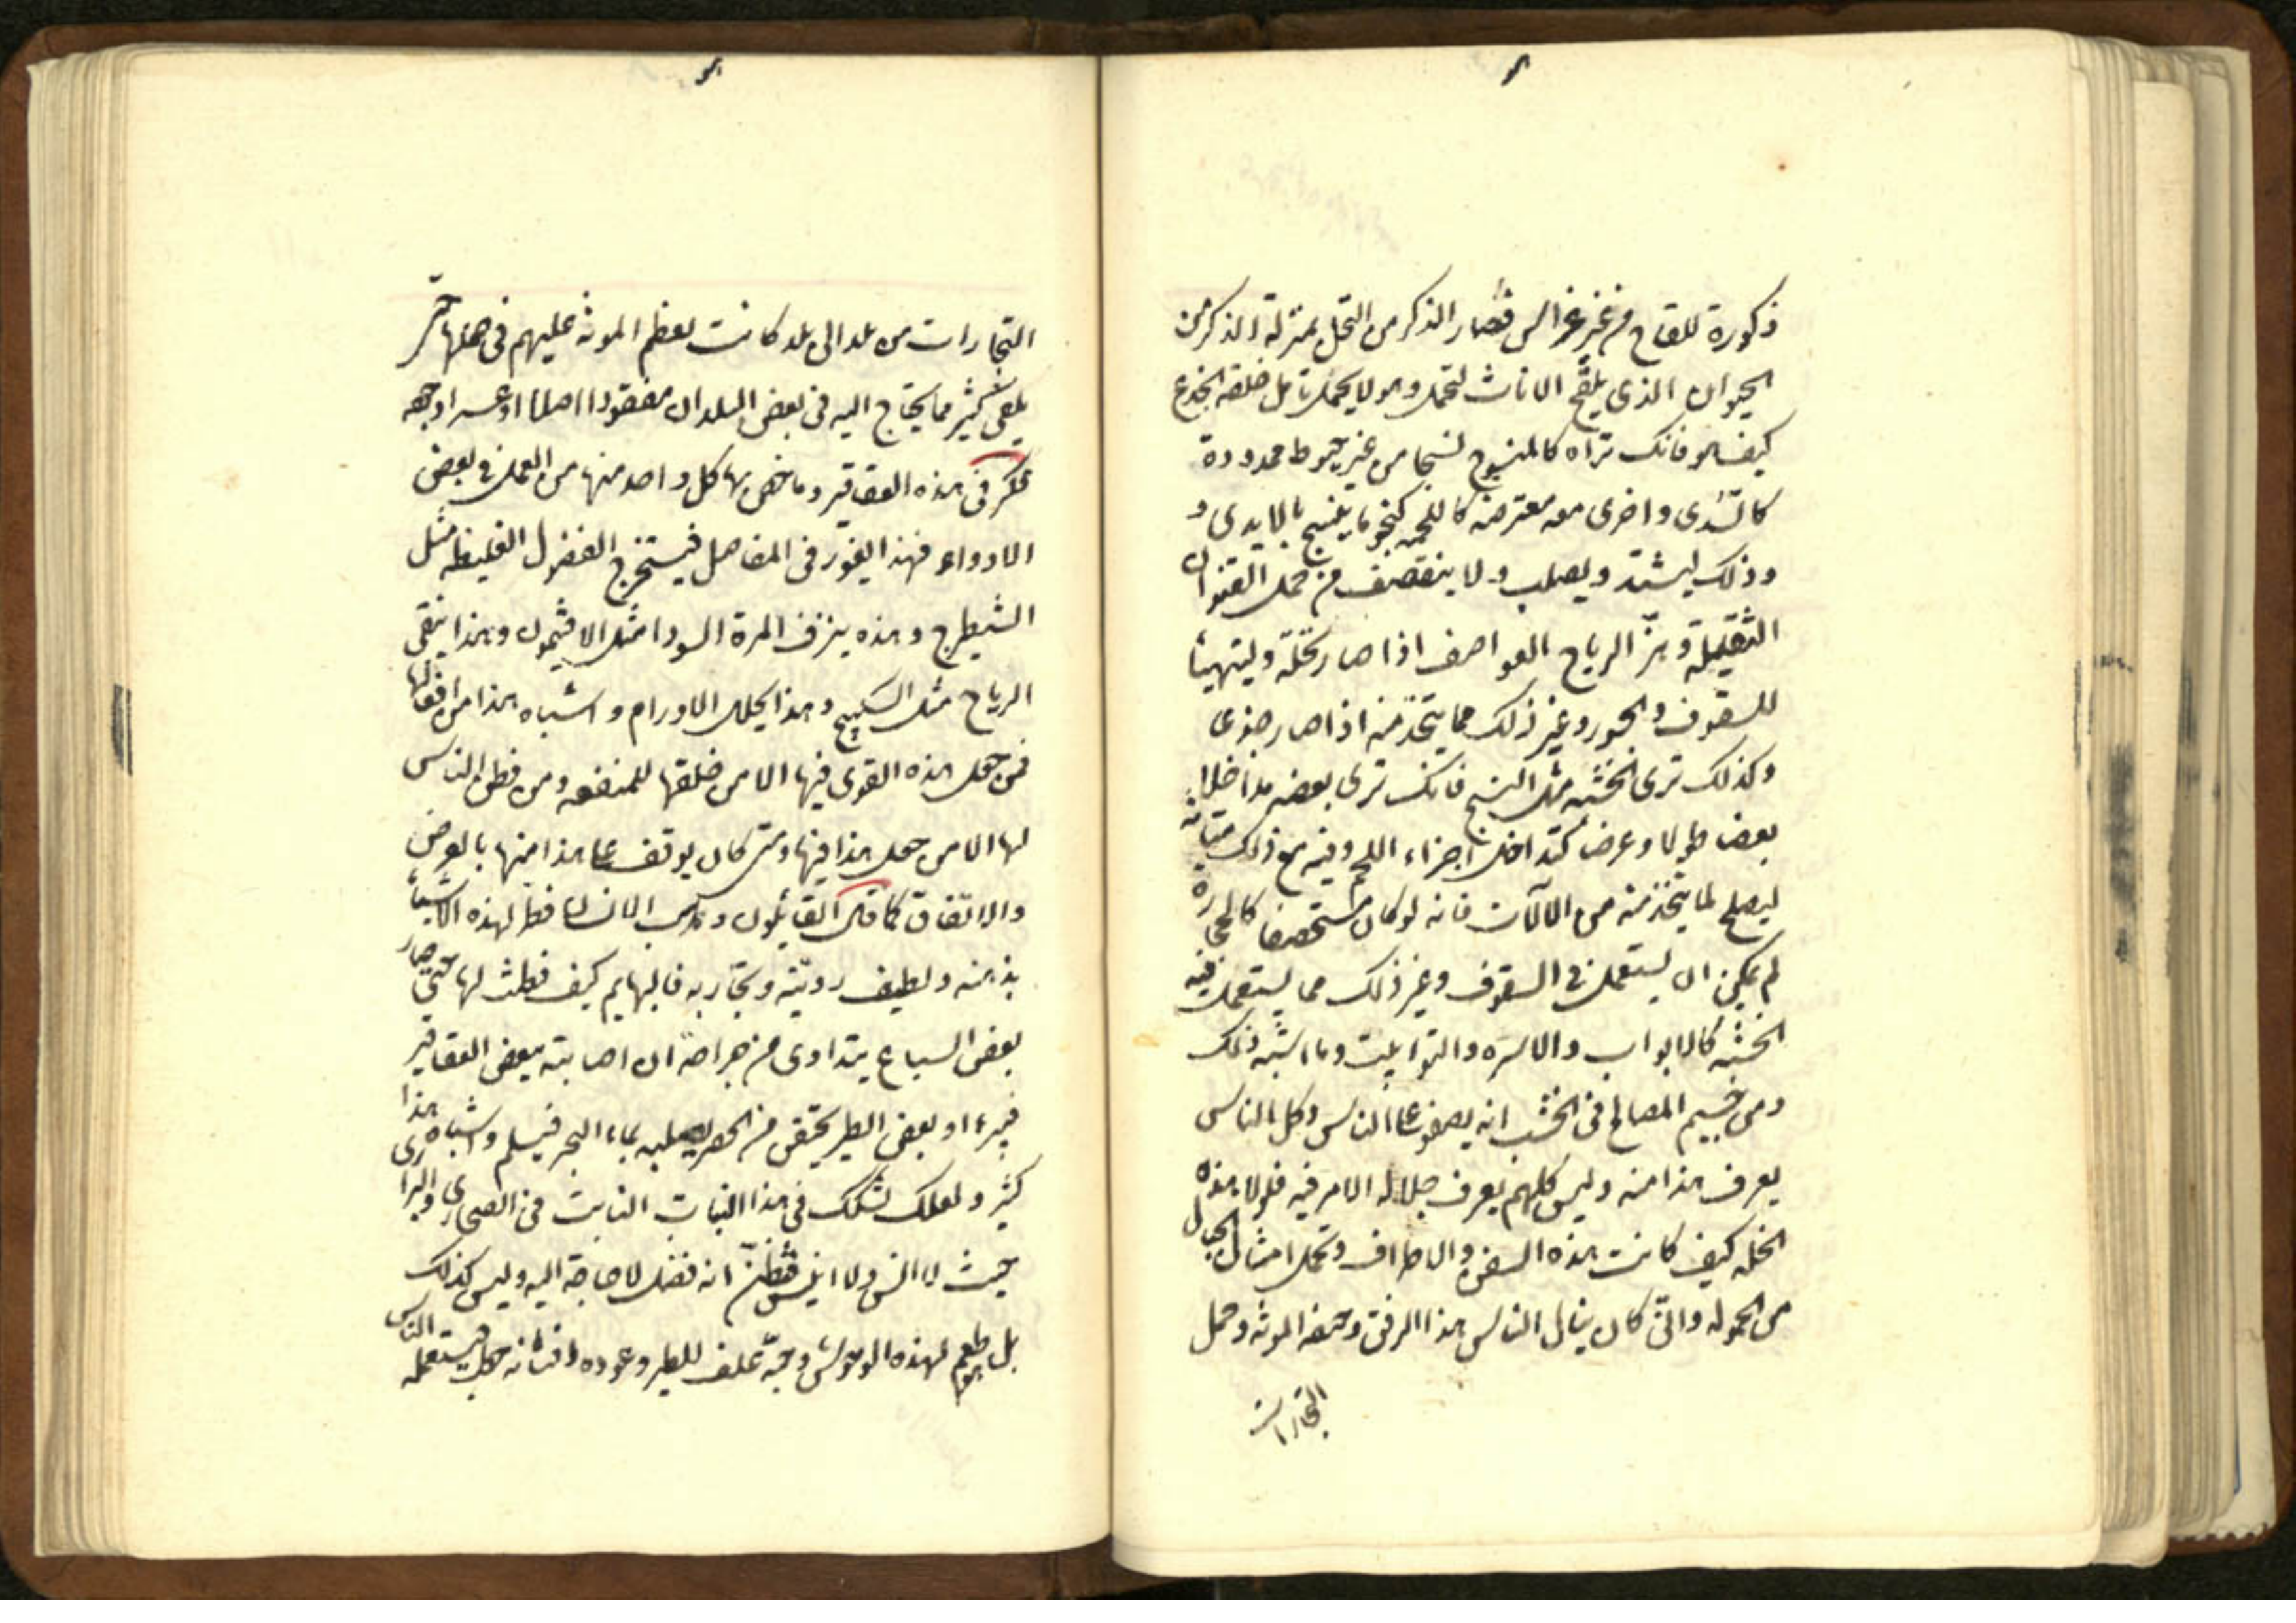 ذكورة للقاح من غير غراس فصار الذكر من النخل بمنزلة الذكر من
الحيوان الذي يلقح الاناث لتحمل وهو لا يحمل تامل خلقة الجذع
كيف هو فانك تراه كالمنسوج نسجا من غير خيوط ممدودة
كالسدى واخرى معه معترضة كاللحمة كنحو ما ينسج بالايدي و
وذلك ليشتد ويصلب ولا ينقصف من حمل القنوان
الثقيلة وهز الرياح العواصف اذا صار نخلة وليتهيأ
للسقوف والجسور وغير ذلك مما يتخذ منه اذا صار جذعا
وكذلك ترى الخشبة مثل النسج فانك ترى بعضه مداخلا
بعضا طولا وعرضا كتداخل اجزاء اللحم وفيه مع ذلك متانة
ليصلح لما يتخذ منه من الآلات فانه لو كان مستحصفا كالحجارة
لم يمكن ان يستعمل في السقوف وغير ذلك مما يستعمل فيه
الخشبة كالابواب والاسرة والتوابيت وما اشبه ذلك
ومن جسيم المصالح في الخشب انه يطفو على الماء فكل الناس
يعرف هذا منه وليس كلهم يعرف جلالة الامر فيه فلولا هذه
الخلة كيف كانت هذه السفن والاظراف تحمل امثال الجبال
من الحمولة وانى كان ينال الناس هذا الرفق وخفة المونة وحمل
التجارات
التجارات من بلد الى بلد كانت تعظم المونة عليهم في حملها حتى
يلقى كثير مما يحتاج اليه في بعض البلدان مفقودا اصلا او عسرا وجوده
فكر في هذه العقاقير وما خص بها كل واحد منها من العمل في بعض
الادواء فهذا يغور في المفاصل فيستخرج الفضول الغليظة مثل
الشيطرج وهذه ينزف المرة السودا مثل الافتيمون وهذا ينفي
الرياح مثل السكبينج وهذا يحلل الاورام واشباه هذا من افعالها
فمن جعل هذه القوى فيها الا من خلقها للمنفعة ومن فطن الناس
لها الا من جعل هذا فيها ومتى كان يوقف على هذا منها بالعرض
والاتفاق كما قال القايلون وهب الانسان فطن لهذه الاشياء
بذهنه ولطيف رويته وتجاربه فالبهايم كيف فطنت لها حتى صار
بعض السباع يتداوى من جراحة ان اصابته ببعض العقاقير
فيبرء او بعض الطير يحتقن من الحصر يصيبه بماء البحر فيسلم واشباه هذا
كثير ولعلك تشكك في هذا النبات النابت في الصحارى والبرارى
حيث لا انس ولا انيس فتظن انه فضل لا حاجة اليه وليس كذلك
بل هو طعم لهذه الوحوش وحبه علف للطير وعوده وافنانه حطب فيستعمله الناس